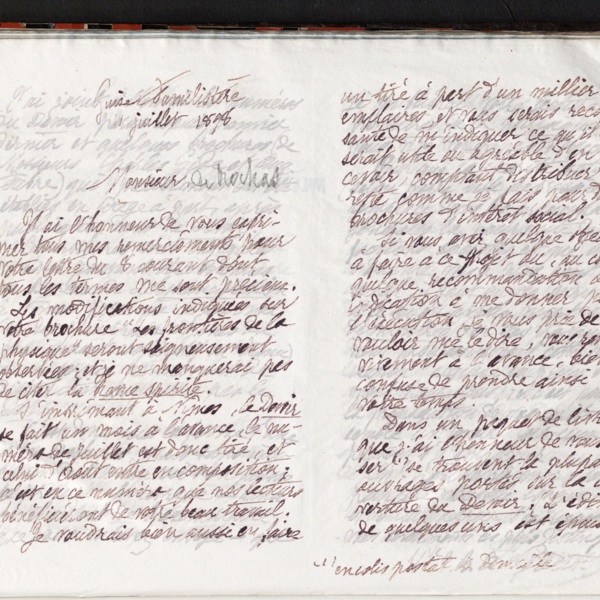 Guise Familistère
juillet 1898
Monsieur de Rochas
J'ai l'honneur de vous expri-
mer tous mes remerciements pour
votre lettre du 8 courant dont
tous les termes me sont précieux.
Les modifications indiquées sur
votre brochure "Les frontières de la
physique" seront soigneusement
observées; et je ne manquerai pas
de citer la Revue spirite.
S'imprimant à Nîmes, le Devoir
se fait un mois à l'avance, le nu-
méro de juillet est donc tiré, et
celui d'août entre en composition;
c'est en ce numéro que nos lecteurs
bénéficieront de votre beau travail.
Je voudrais bien aussi en faire
un tiré à part d'un millier
emplaires, et vous serais reco
sante de m'indiquer ce qu'il
serait utile ou agréable d'en
cevoir, comptant distribuer
reste comme je fais pour d
brochures d'intérêt social.
Si vous avez quelque
à faire à ce projet ou
quelque recommandation
indication à me donner p
l'exécution, je vous prie de
vouloir me le dire, vous
vivement à l'avance, bien
confuse de prendre ainsi
votre temps.
Dans un paquet de liv
que j'ai l'honneur de vous
ser, se trouvent la plupa
ouvrages portés sur la c
verture du Devoir; l'édi
de quelques uns est épui
en colis postal